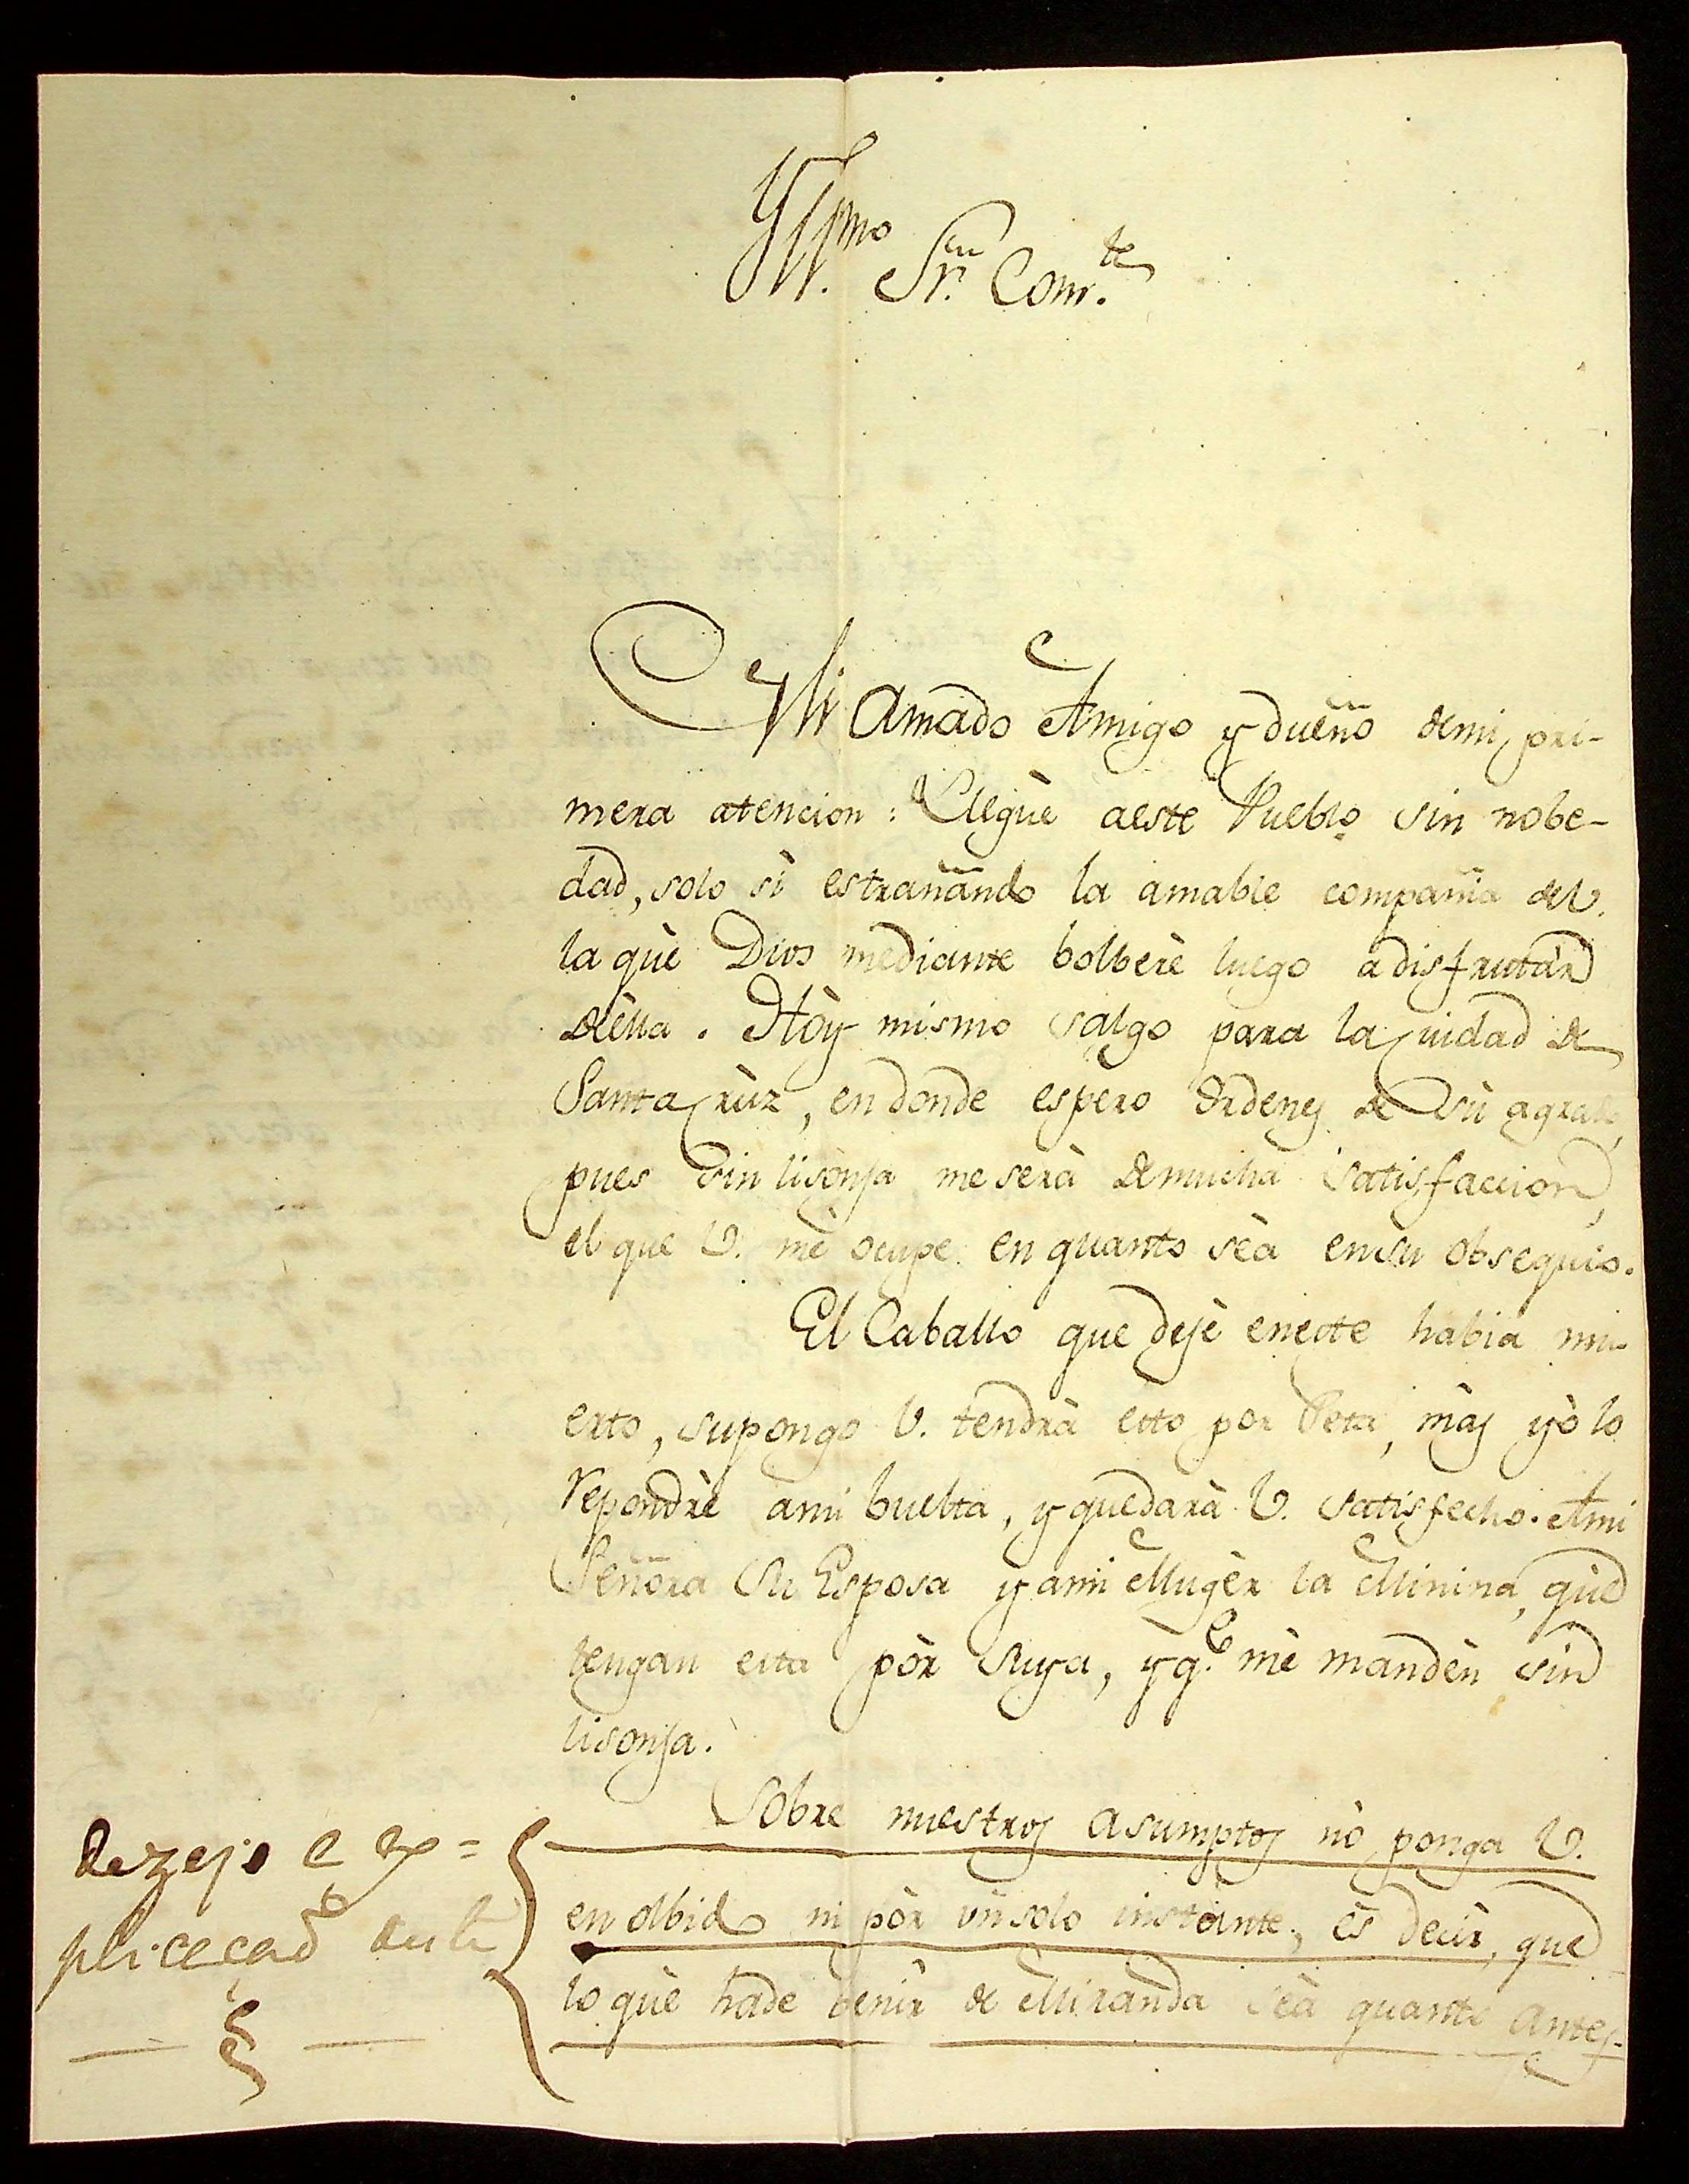 Yll.mo Sr.en Com.te
Mi Amado Amigo y dueño demi pri-
mera atencion: Llegùe aeste Pueblo sin nobe-
dad, solo sì estrañando la amable compañia deV.
la què Dios mediante bolberè luego adisfrutàr
dèlla. Hòy mismo salgo para la Ciudad de
Santa Crùz, en donde espero ordenes de sù agrado,
pues sin lisonja me serà demucha satisfaccion,
el que V. mè ocupe en quanto sèa ensu obsequio.
El Caballo que dejè eneste habia mu-
erto, supongo V. tendrà esto por Peta, màs yò lo
repondrè ami buelta, y quedarà V. satisfecho. Ami
Señora Su Esposa y ami Mugèr la Minina, què
tengan esta pòr Suya, y q.e mè mandèn sin
lisonja.
Sobre nuestros asumptos nò ponga V.
en olbido ni pòr ùn solo instante, ès decir, que
lo què hade benìr de Miranda sèa quanto antes.
Dezejo e ex=
plicaçaõ deste
§